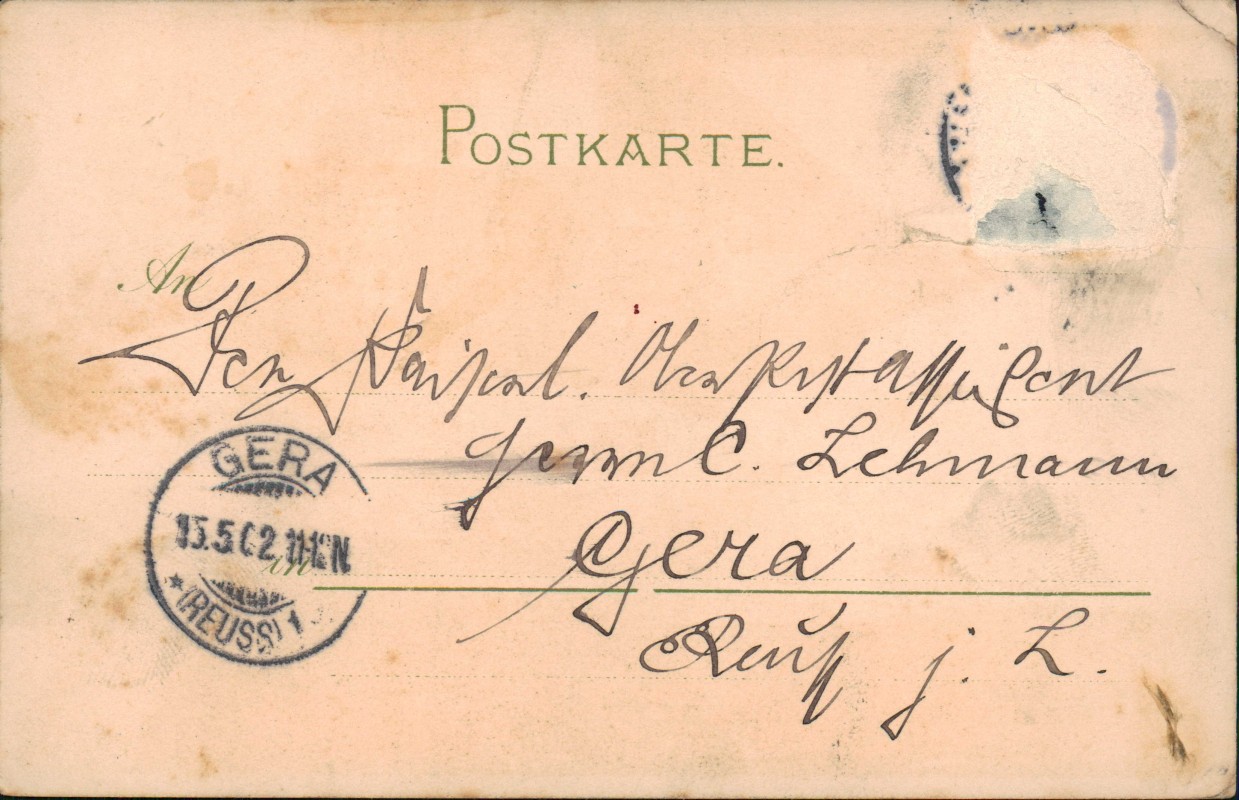 POSTKARTE.
An
Den Kaiserl. Oberpostassistent
Herrn C. Lehmann
Gera
in
Reuß j. L.
GERA
15.5.02.11-12N
* (REUSS) 1